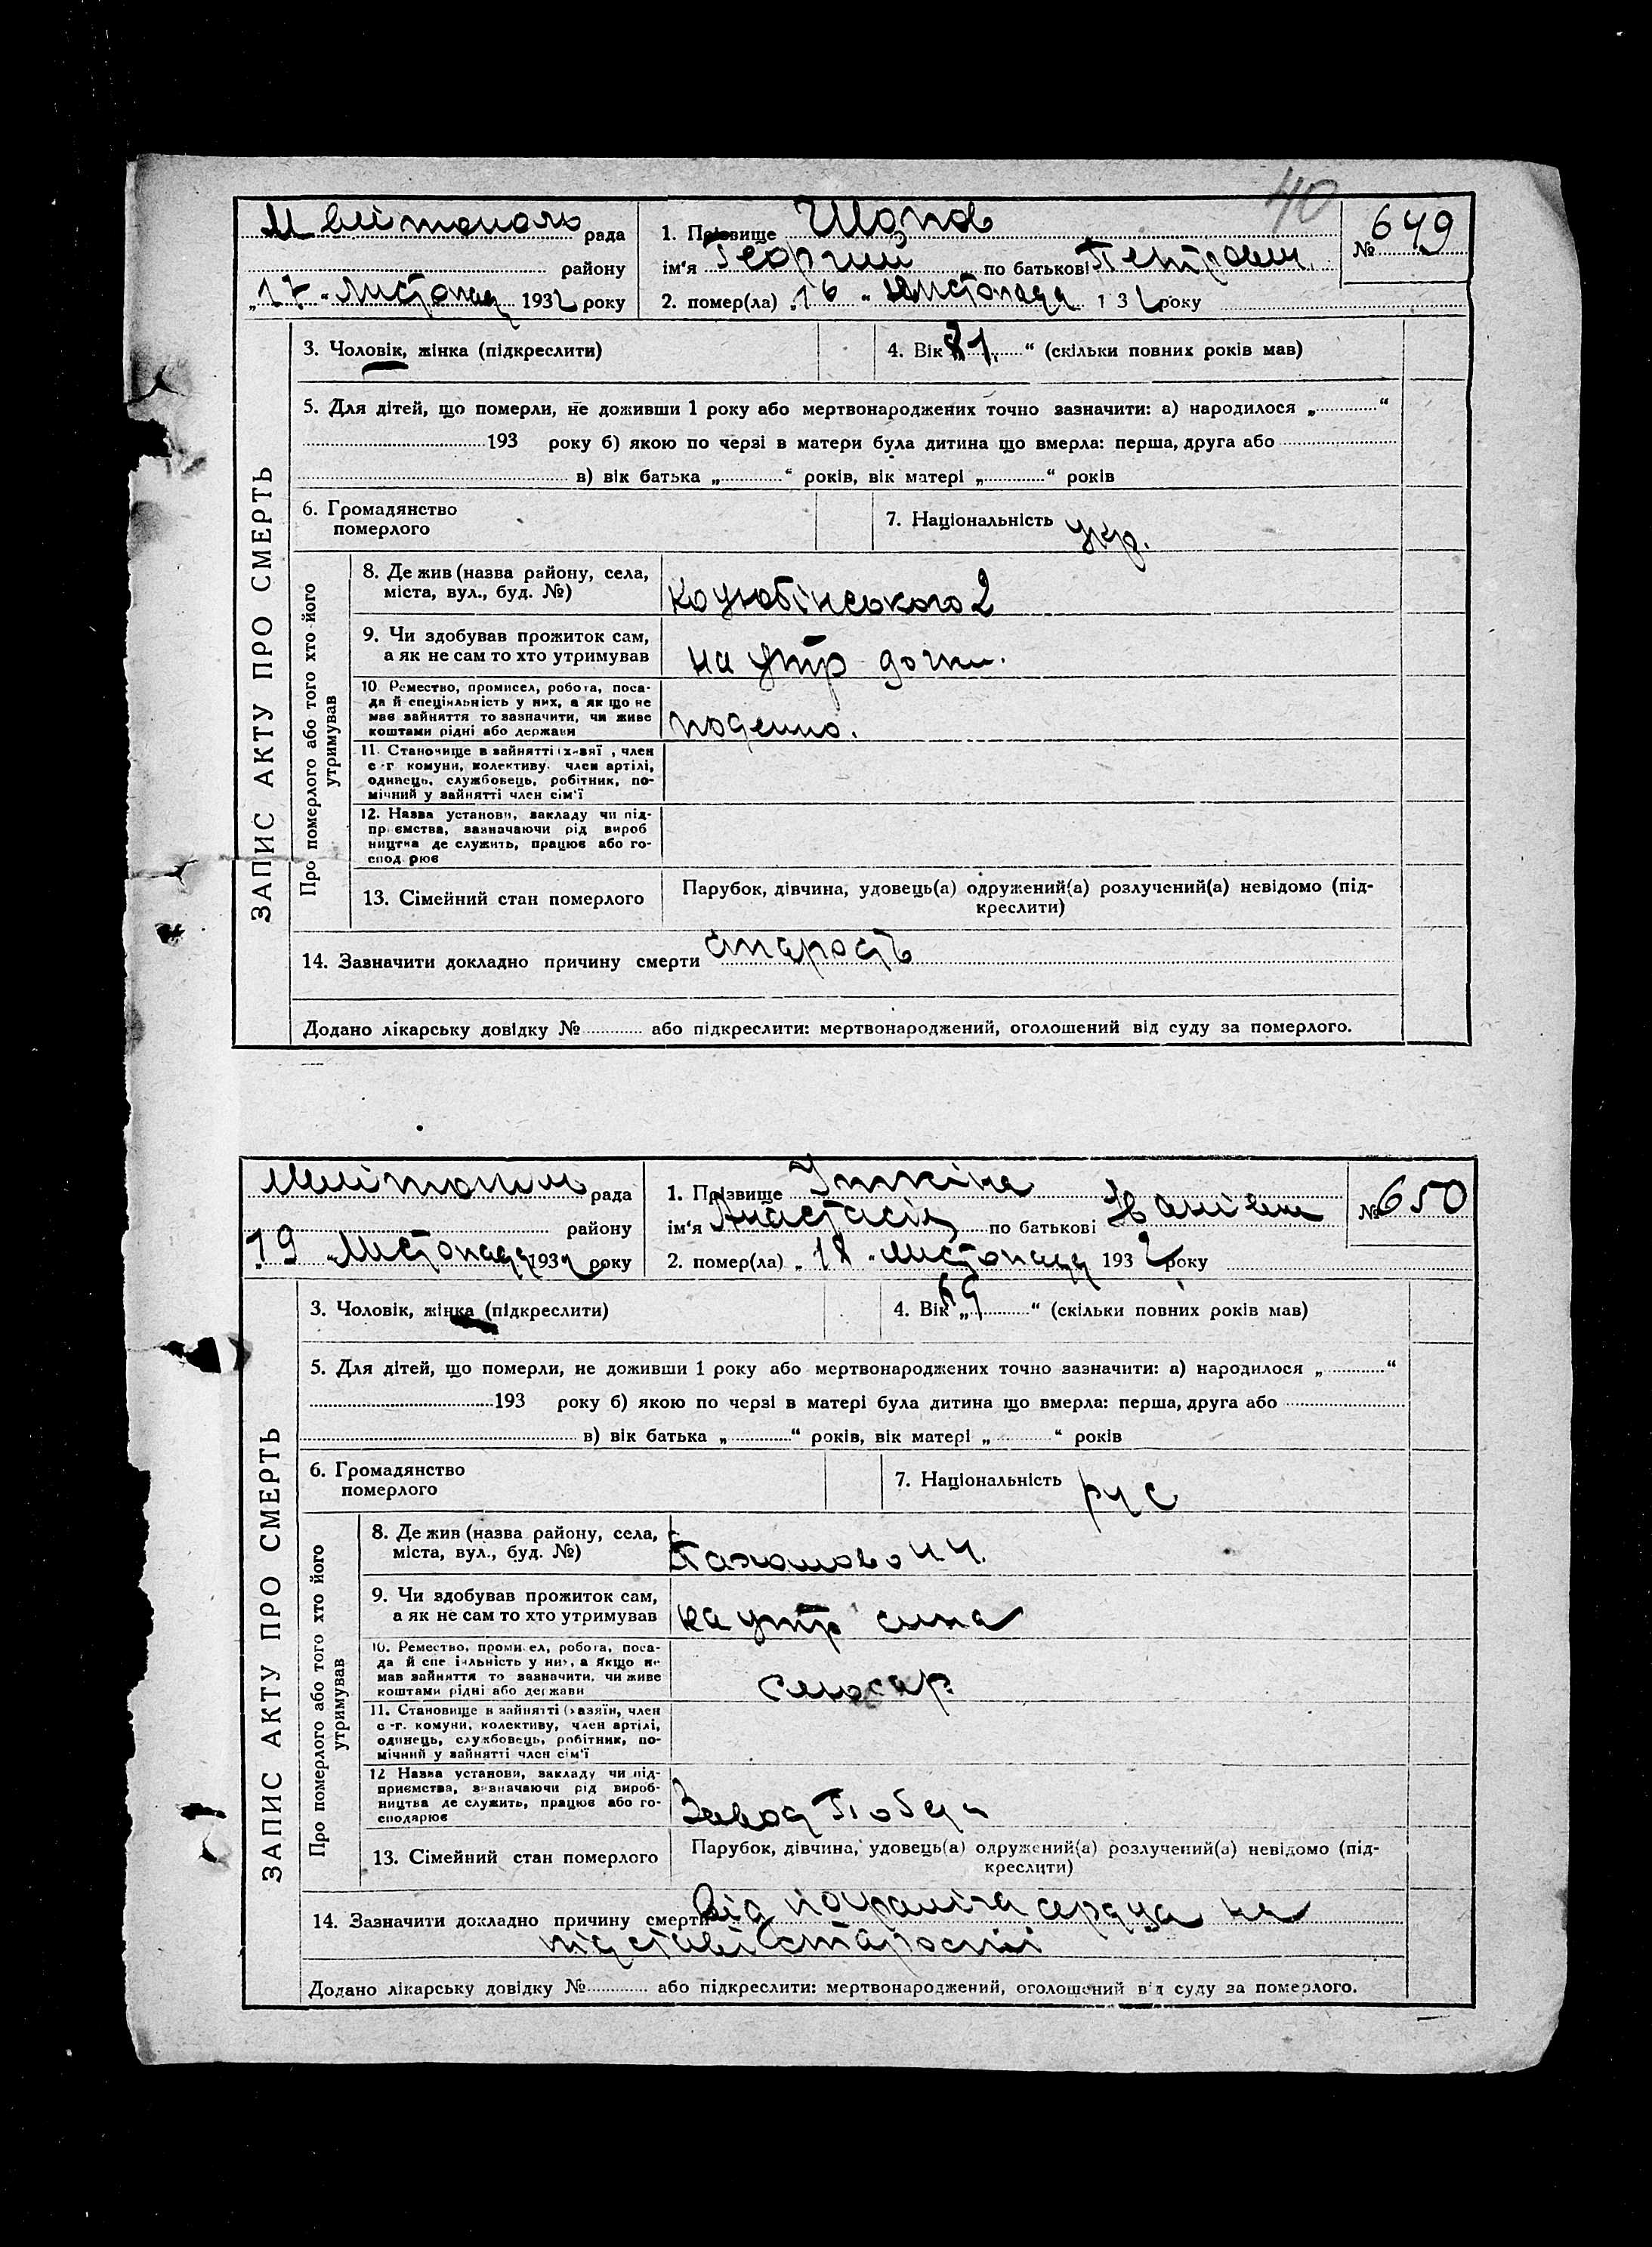 40
Мелітополь рада
району
„17“ Листопад 1932 року
1. Прізвище Шопов
ім'я Георгий по батькові Петрович
2. помер(ла) „16“ Листопада 1 32 року
№ 649
ЗАПИС АКТУ ПРО СМЕРТЬ
3. Чоловік, жінка (підкреслити)
4. Вік „81“ (скільки повних років мав)
5. Для дітей, що померли, не доживши 1 року або мертвонароджених точно зазначити: а) народилося „ “
193 року б) якою по черзі в матери була дитина що вмерла: перша, друга або
в) вік батька „ “ років, вік матері „ “ років
6. Громадянство
померлого
7. Національність укр.
Про померлого або того хто його
утримував
8. Де жив (назва району, села,
міста, вул., буд. №)
Коцюбінського 2
9. Чи здобував прожиток сам,
а як не сам то хто утримував
на утр дочки.
10. Ремество, промисел, робота, поса-
да й спеціяльність у них, а як що не
має зайняття то зазначити, чи живе
коштами рідні або держави
поденно.
11. Становище в зайнятті , член
с -г комуни, колективу, член артілі,
одинець, службовець, робітник, по-
мічний у зайнятті член сім'ї
12. Назва установи, закладу чи під-
приємства, зазначаючи рід вироб
ництва де служить, працює або го-
сподарює
13. Сімейний стан померлого
Парубок, дівчина, удовець(а) одружений(а) розлучений(а) невідомо (під-
креслити)
14. Зазначити докладно причину смерти старость
Додано лікарську довідку № або підкреслити: мертвонароджений, оголошений від суду за померлого.
рада
району
19 Листопада 1932 року
1. Прізвище Уткіна
ім'я Анастасія по батькові
2. помер(ла) „18“ Листопада 1932 року
№ 650
ЗАПИС АКТУ ПРО СМЕРТЬ
3. Чоловік, жінка (підкреслити)
4. Вік „69“ (скільки повних років мав)
5. Для дітей, що померли, не доживши 1 року або мертвонароджених точно зазначити: а) народилося „ “
193 року б) якою по черзі в матері була дитина що вмерла: перша, друга або
в) вік батька „ “ років, вік матері „ “ років
6. Громадянство
померлого
7. Національність рус
Про померлого або того хто його
утримував
8. Де жив (назва району, села,
міста, вул., буд. №)
9. Чи здобував прожиток сам,
а як не сам то хто утримував
на утр сина
10. Ремество, промисел, робота, поса-
да й спеціяльність у них, а якщо не
мав зайняття то зазначити, чи живе
коштами рідні або держави
слюсар
11. Становище в зайнятті (хазяїн, член
с -г. комуни, колективу, член артілі,
одинець, службовець, робітник, по-
мічний у зайнятті член сім'ї
12 Назва установи, закладу чи під-
приємства, зазначаючи рід вироб-
ництва де служить, працює або го-
сподарює
Завод Победа
13. Сімейний стан померлого
Парубок, дівчина, удовець(а) одружений(а) розлучений(а) невідомо (під-
креслити)
14. Зазначити докладно причину смерти Від параліча сердца на
підставі старости
Додано лікарську довідку № або підкреслити: мертвонароджений, оголошений від суду за померлого.